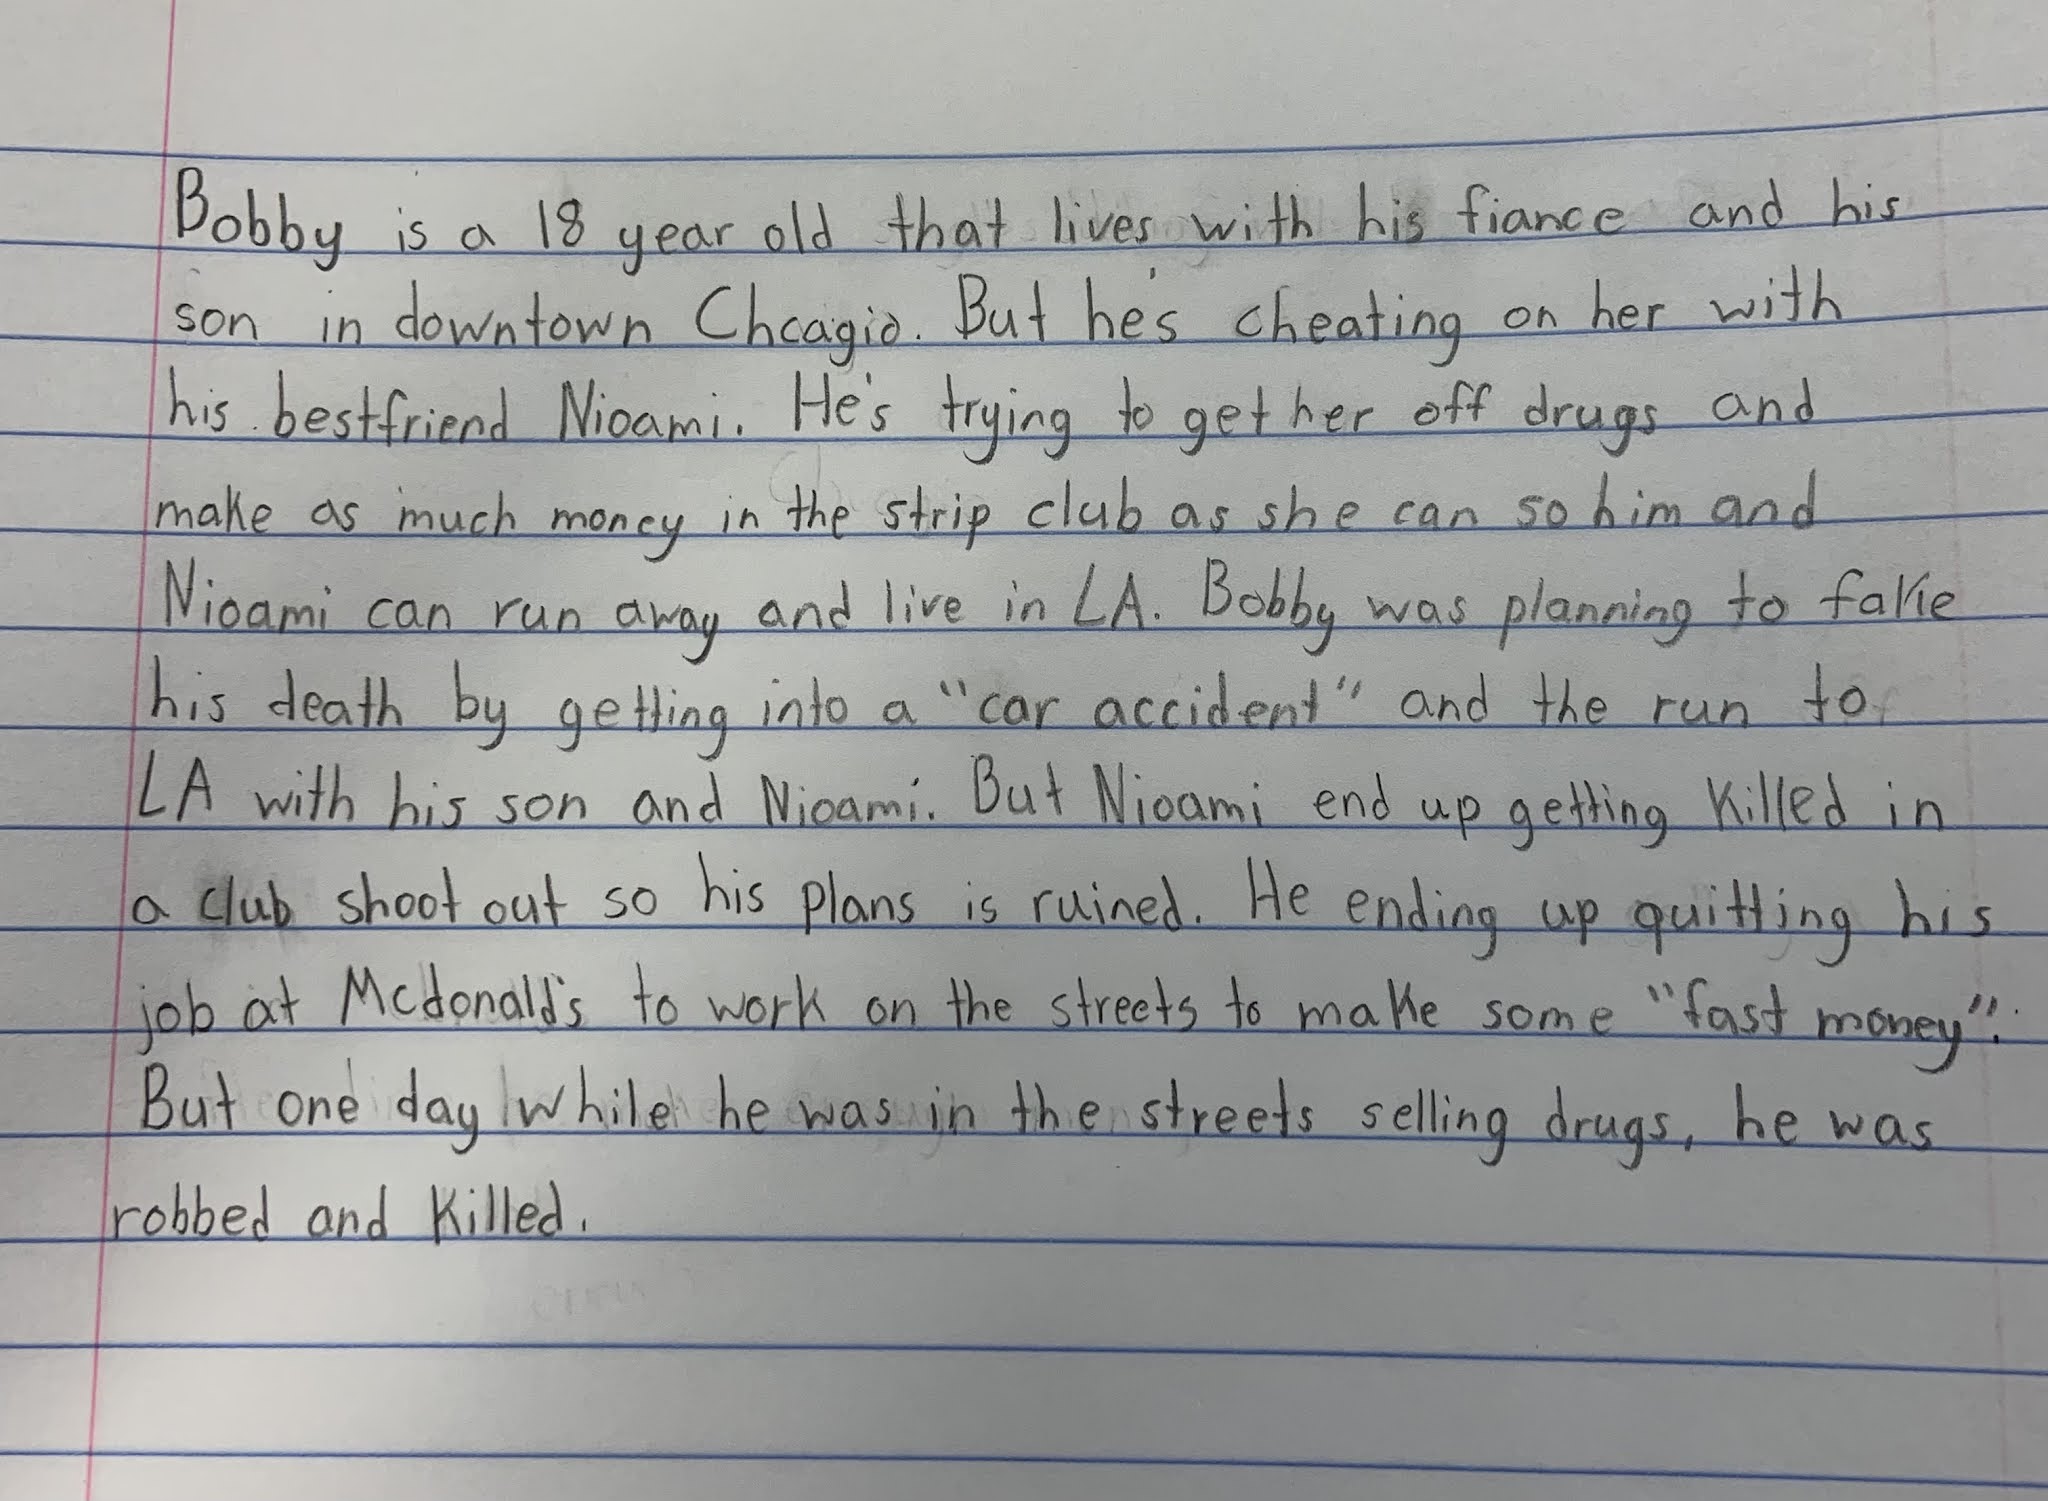 Bobby is a 18 year old that lives with his fiance and his
son in downtown Chcagio. But he's cheating on her with
his bestfriend Nioami. He's trying to get her off drugs and
make as much money in the strip club as she can so him and
Nioami can run away and live in LA. Bobby was planning to fake
his death by getting into a "car accident" and the run to
LA with his son and Nioami. But Nioami end up getting killed in
a club shoot out so his plans is ruined. He ending up quitting his
job at Mcdonald's to work on the streets to make some "fast money".
But one day while he was in the streets selling drugs, he was
robbed and killed.